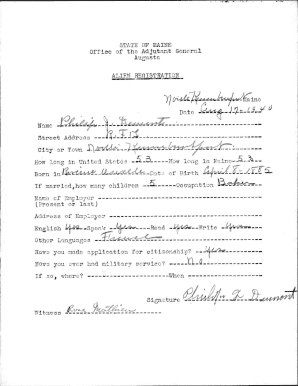 STATE OF MAINE
Office of the Adjutant General
Augusta
ALIEN REGISTRATION
North Kennebunkport Maine
Date Aug 12-1940
Name Philip J. Dumont
Street Address R.F.D
City or Town North Kennebunkport
How long in United States 53 How long in Maine 53
Born in Canada Date of Birth April 8-1885
If married, how many children 5 Occupation
Name of Employer
(Present or last)
Address of Employer
English Yes Speak Yes Read Yes Write Yes
Other Languages French
Have you made application for citizenship? Yes
Have you ever had military service? No
If so, where? When
Signature Philip J. Dumont
Witness Rose Mathieu